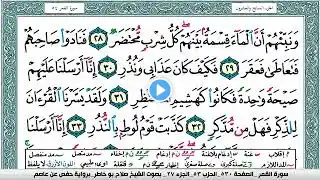 الجزء السابع والعشرون
سورة القمر ٥٤
وَنَبِّئْهُمْ أَنَّ الْمَاءَ قِسْمَةٌ بَيْنَهُمْ كُلُّ شِرْبٍ مُّحْتَضَرٌ ٢٨ فَنَادَوْا صَاحِبَهُمْ
فَتَعَاطَىٰ فَعَقَرَ ٢٩ فَكَيْفَ كَانَ عَذَابِي وَنُذُرِ ٣٠ إِنَّا أَرْسَلْنَا عَلَيْهِمْ
صَيْحَةً وَاحِدَةً فَكَانُوا كَهَشِيمِ الْمُحْتَظِرِ ٣١ وَلَقَدْ يَسَّرْنَا الْقُرْآنَ
لِلذِّكْرِ فَهَلْ مِن مُّدَّكِرٍ ٣٢ كَذَّبَتْ قَوْمُ لُوطٍ بِالنُّذُرِ ٣٣ إِنَّا أَرْسَلْنَا
سورة القمر - الصفحة ٥٣٠ - الحزب ٥٣ - الجزء ٢٧ - بصوت الشيخ صلاح بو خاطر - برواية حفص عن عاصم